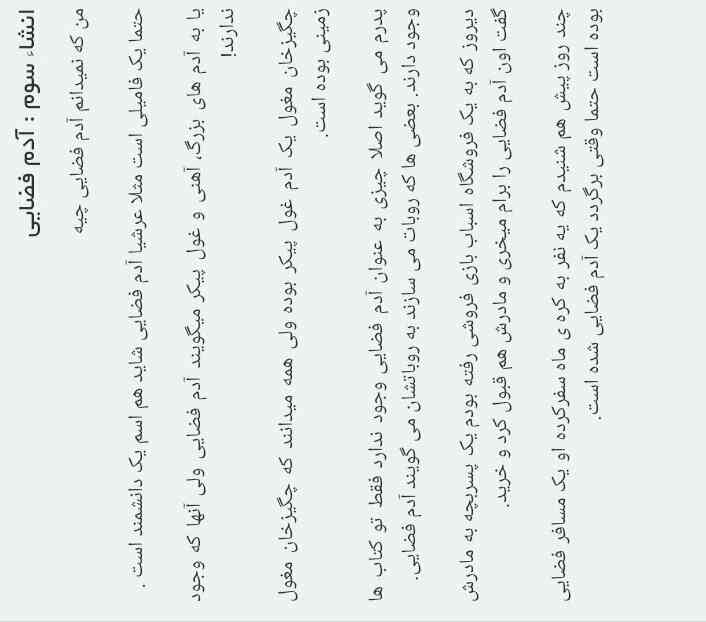 انشاء سوم : آدم فضایی
من که نمیدانم آدم فضایی چیه
حتما یک فامیلی است مثلا عرشیا آدم فضایی شاید هم اسم یک دانشمند است .
یا به آدم های بزرگ، آهنی و غول پیکر میگویند آدم فضایی ولی آنها که وجود
ندارند!
چگیزخان مغول یک آدم غول پیکر بوده ولی همه میدانند که چگیزخان مغول
زمینی بوده است.
پدرم می گوید اصلا چیزی به عنوان آدم فضایی وجود ندارد فقط تو کتاب ها
وجود دارند. بعضی ها که روبات می سازند به روباتشان می گویند آدم فضایی.
دیروز که به یک فروشگاه اسباب بازی فروشی رفته بودم یک پسربچه به مادرش
گفت اون آدم فضایی را برام میخری و مادرش هم قبول کرد و خرید.
چند روز پیش هم شنیدم که یه نفر به کره ی ماه سفرکرده او یک مسافر فضایی
بوده است حتما وقتی برگردد یک آدم فضایی شده است.